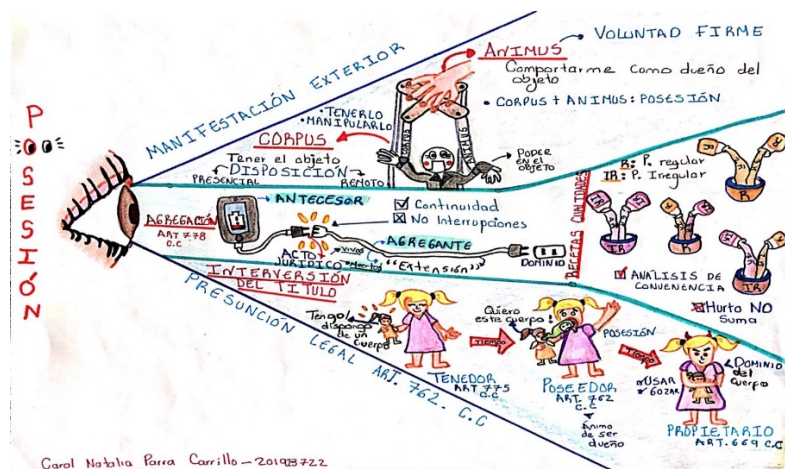 POSESIÓN
MANIFESTACIÓN EXTERIOR
ANIMUS
VOLUNTAD FIRME
Comportarme como dueño del
objeto
• CORPUS + ANIMUS: POSESIÓN
• TENERLO
• MANIPULARLO
CORPUS
CORPUS
ANIMUS
PODER
EN EL
OBJETO
Tener el objeto
DISPOSICIÓN
PRESENCIAL
REMOTO
AGREGACIÓN
ART 778
C.C
ANTECESOR
Continuidad
No Interrupciones
ACTO
JURÍDICO
Vivos
Muertos
AGREGANTE
"Extensión"
DOMINIO
RECETAS CUALIDADES
R: P. regular
IR: P. Irregular
R
R
IR
R
IR
ANÁLISIS DE
CONVENIENCIA
Hurto NO
Suma
INTERVERSIÓN
DEL TITULO
PRESUNCIÓN LEGAL ART. 762. C.C
Tengo/
dispongo
de un
cuerpo
TENEDOR
ART 775
C.C
Tiempo
Quiero
este cuerpo!
POSESIÓN
POSEEDOR
ART. 762
C.C
Ánimo
de ser
dueño
Tiempo
USAR
GOZAR
DOMINIO
del
cuerpo
PROPIETARIO
ART. 669 C.C
Carol Natalia Parra Carrillo - 201923722